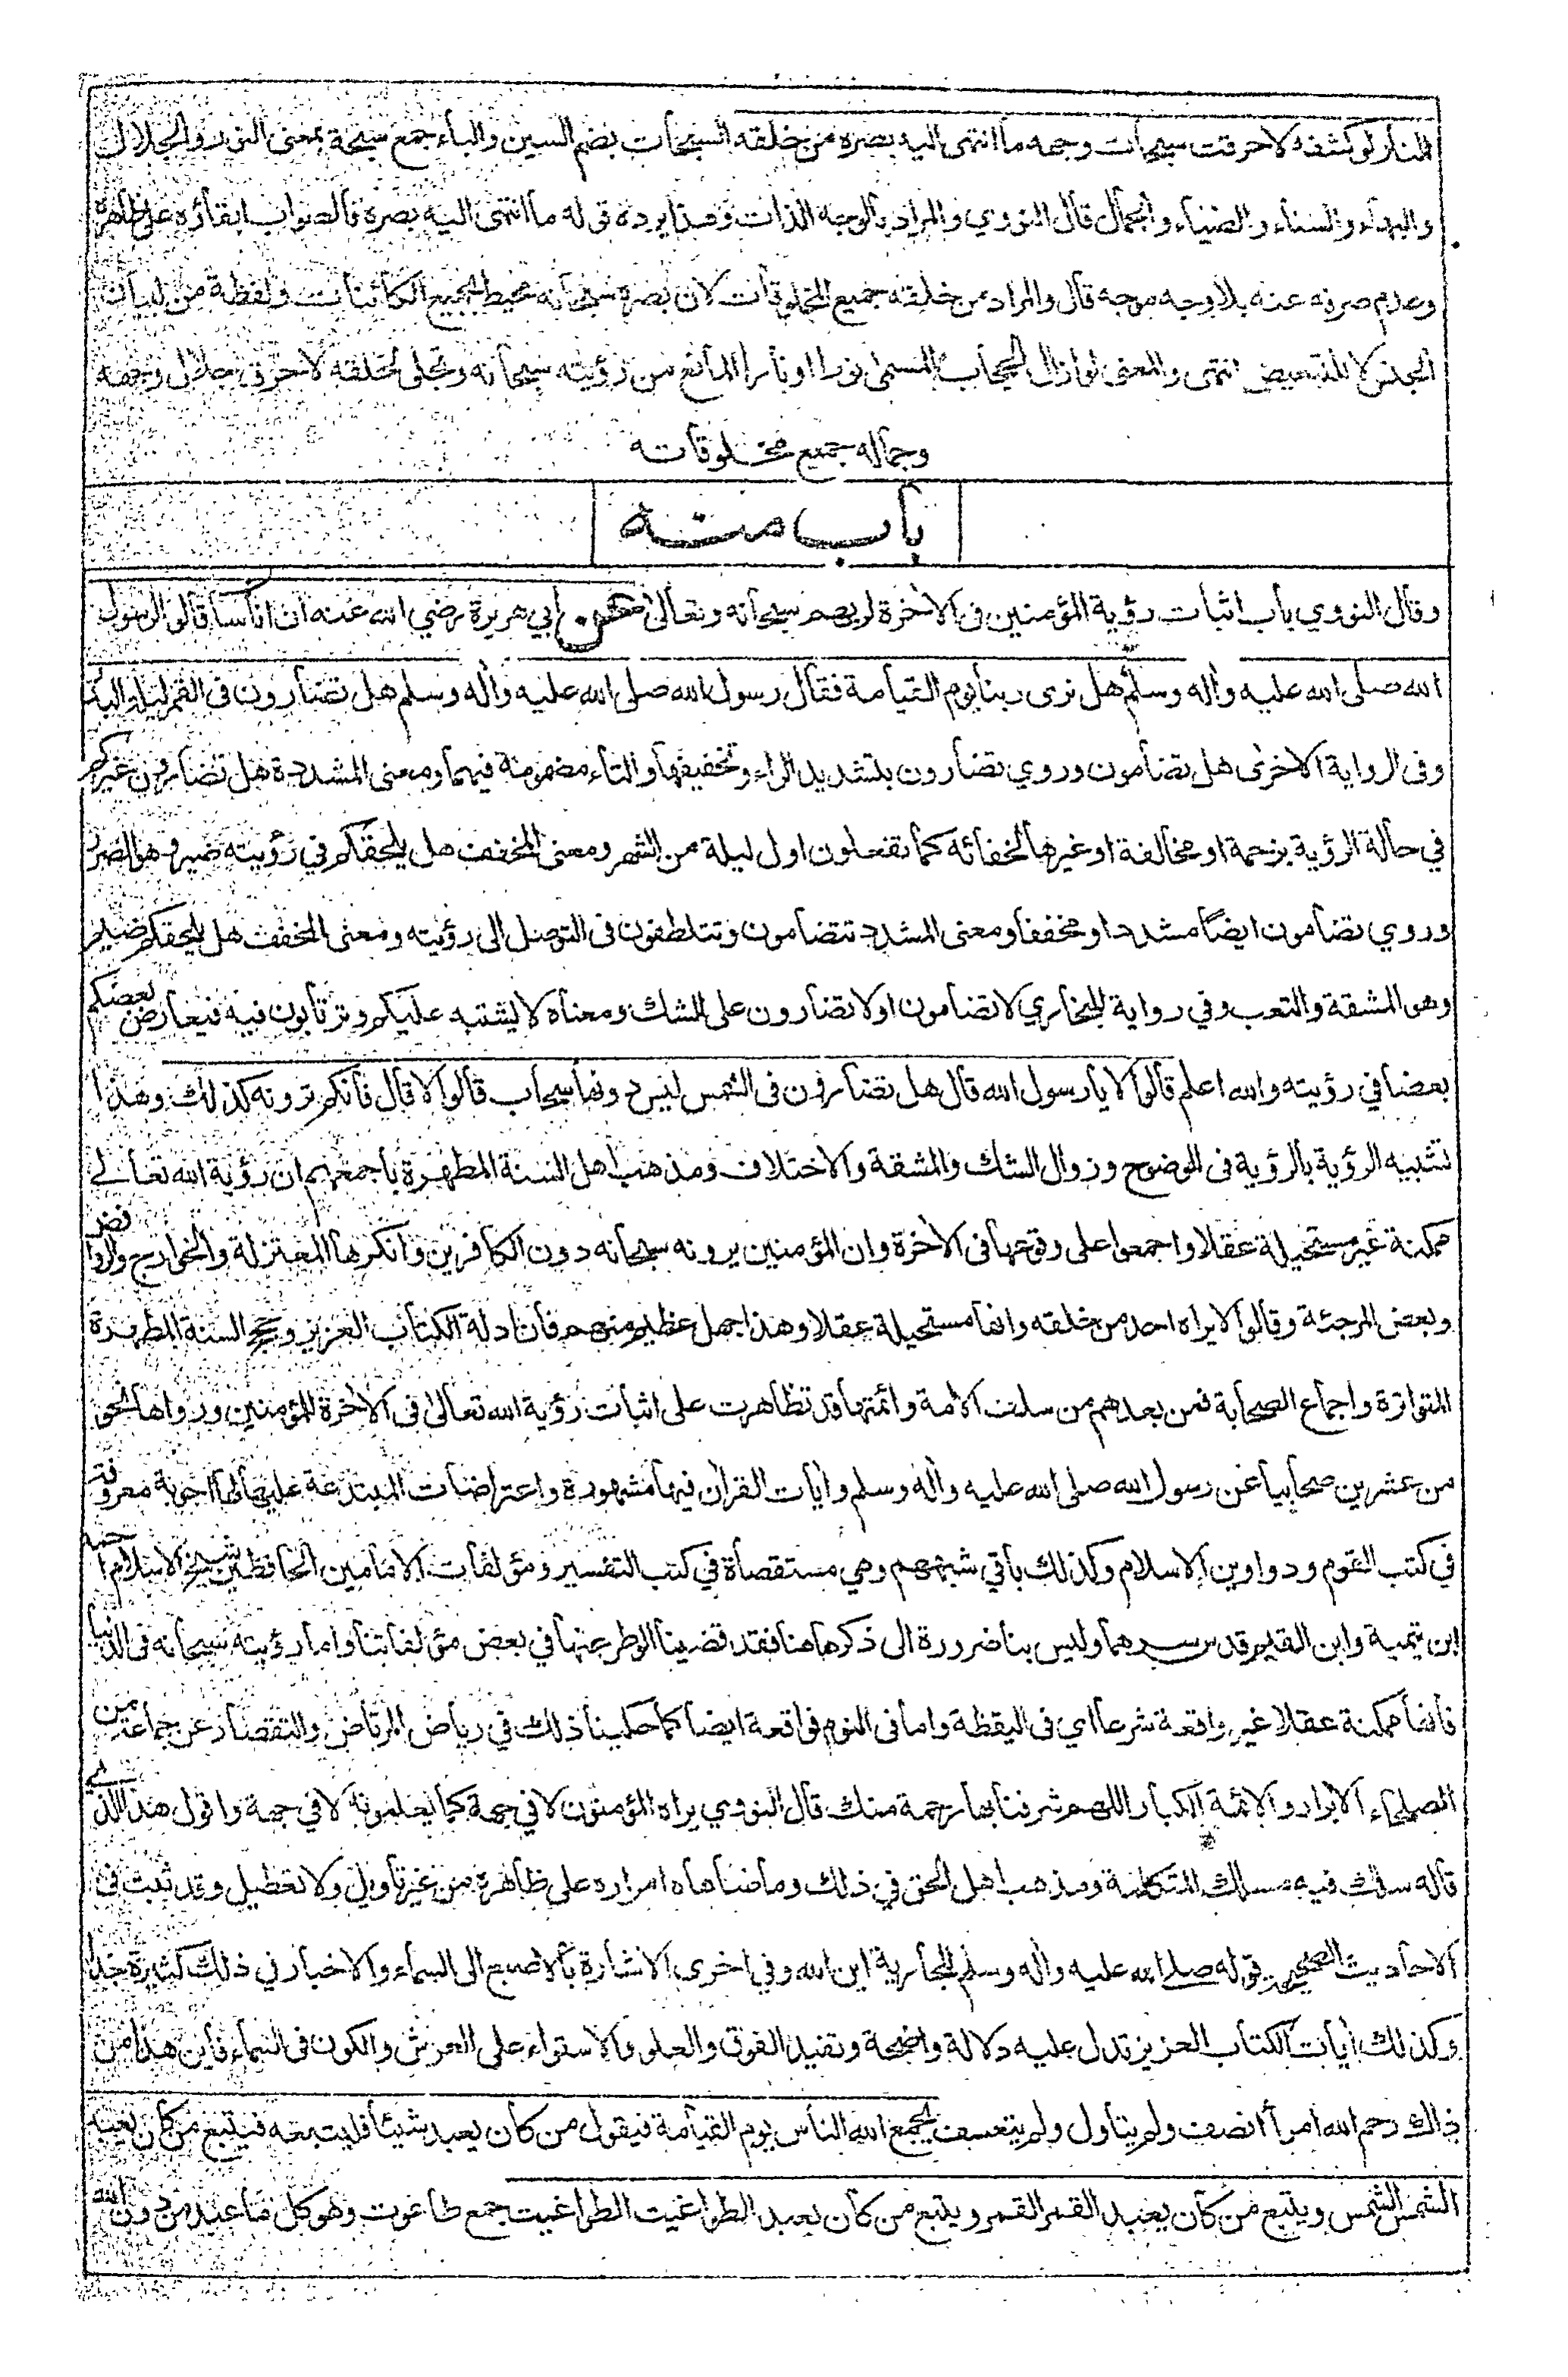 النار لو كشفه لاحرقت سبحات وجهه ما انتهى اليه بصره من خلقه السبحات بضم السين والباء جمع سبحة بمعنى النور والجلال
والبهاء والسناء والضياء والجمال قال النووي والمراد بالوجه الذات وهذا يرده قوله ما انتهى اليه بصره فالصواب ابقاؤه على ظاهره
وعدم صرفه عنه بلا وجه موجه قال والمراد من خلقه جميع المخلوقات لان بصره سبحانه محيط بجميع الكائنات ولفظة من لبيان
الجنس لا للتبعيض انتهى والمعنى لو ازال الحجاب المسمى نورا او نارا المانع من رؤيته سبحانه وتجلى لخلقه لاحرق جلال وجهه
وجماله جميع مخلوقاته
باب منه
وقال النووي باب اثبات رؤية المؤمنين فى الاخرة لربهم سبحانه وتعالى عن ابي هريرة رضي الله عنه ان اناسا قالوا لرسول
الله صلى الله عليه واله وسلم هل نرى ربنا يوم القيامة فقال رسول الله صلى الله عليه واله وسلم هل تضارون فى القمر ليلة البدر
وفى الرواية الاخرى هل تضامون وروي تضارون بتشديد الراء وتخفيفها والتاء مضمومة فيهما ومعنى المشددة هل تضارون غيركم
في حالة الرؤية بزحمة او مخالفة او غيرها لخفائه كما تفعلون اول ليلة من الشهر ومعنى المخفف هل يلحقكم في رؤيته ضير وهو الضرر
وروي تضامون ايضا مشددا ومخففا ومعنى المشدد تتضامون وتتلطفون فى التوصل الى رؤيته ومعنى المخفف هل يلحقكم ضير
وهو المشقة والتعب وفي رواية للبخاري لا تضامون او لا تضارون على الشك ومعناه لا يشتبه عليكم وترتابون فيه فيعارض بعضكم
بعضا في رؤيته والله اعلم قالوا لا يا رسول الله قال هل تضارون فى الشمس ليس دونها سحاب قالوا لا قال فانكم ترونه كذلك وهذا
تشبيه الرؤية بالرؤية فى الوضوح وزوال الشك والمشقة والاختلاف ومذهب اهل السنة المطهرة باجمعهم ان رؤية الله تعالى
ممكنة غير مستحيلة عقلا واجمعوا على وقوعها فى الاخرة وان المؤمنين يرونه سبحانه دون الكافرين وانكرها المعتزلة والخوارج والروافض
وبعض المرجئة وقالوا لا يراه احد من خلقه وانها مستحيلة عقلا وهذا جهل عظيم منهم فان ادلة الكتاب العزيز وحجج السنة المطهرة
المتواترة واجماع الصحابة فمن بعدهم من سلف الامة وائمتها قد تظاهرت على اثبات رؤية الله تعالى فى الاخرة للمؤمنين ورواها نحو
من عشرين صحابيا عن رسول الله صلى الله عليه واله وسلم وايات القران فيها مشهورة واعتراضات المبتدعة عليها لها اجوبة معروفة
في كتب القوم ودواوين الاسلام وكذلك باقي شبههم وهي مستقصاة في كتب التفسير ومؤلفات الامامين الحافظين شيخ الاسلام احمد
ابن تيمية وابن القيم قدس سرهما وليس بنا ضرورة الى ذكرها هنا فقد قضينا الوطر عنها في بعض مؤلفاتنا واما رؤيته سبحانه فى الدنيا
فانها ممكنة عقلا غير واقعة شرعا اي فى اليقظة واما فى النوم فواقعة ايضا كما حكينا ذلك في رياض المرتاض والتقصار عن جماعة من
الصلحاء الابرار والائمة الكبار اللهم شرفنا بها رحمة منك قال النووي يراه المؤمنون لا في جهة كما يعلمونه لا في جهة واقول هذا الذي
قاله سلك فيه مسلك المتكلمة ومذهب اهل الحق في ذلك وما ضاهاه امراره على ظاهره من غير تاويل ولا تعطيل وقد ثبت فى
الاحاديث الصحيحة قوله صلى الله عليه واله وسلم للجارية اين الله وفي اخرى الاشارة بالاصبع الى السماء والاخبار في ذلك كثيرة جدا
وكذلك ايات الكتاب العزيز تدل عليه دلالة واضحة وتفيد الفوق والعلو والاستواء على العرش والكون فى السماء فاين هذا من
ذاك رحم الله امرأ انصف ولم يتاول ولم يتعسف يجمع الله الناس يوم القيامة فيقول من كان يعبد شيئا فليتبعه فيتبع من كان يعبد
الشمس الشمس ويتبع من كان يعبد القمر القمر ويتبع من كان يعبد الطواغيت الطواغيت جمع طاغوت وهو كل ما عبد من دون الله